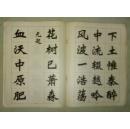 下土惟秦醉
中流輟越吟
風波一浩蕩
花樹已蕭森
无题
血沃中原肥